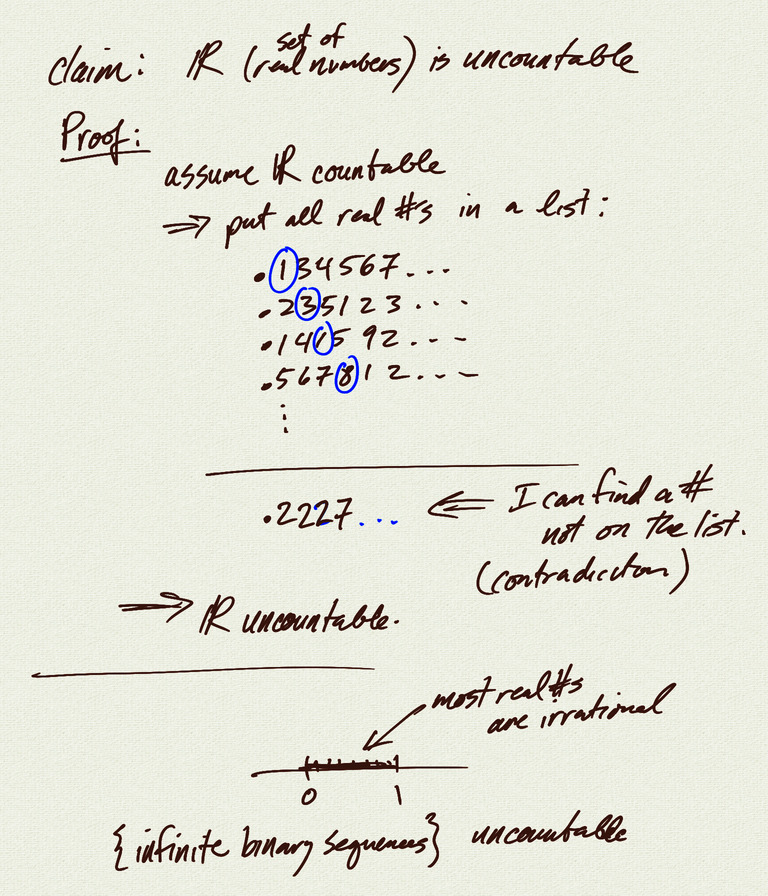 claim: ℝ (set of real numbers) is uncountable
Proof:
assume ℝ countable
⟹ put all real #'s in a list:
.134567...
.235123...
.141592...
.567812...
⋮
.2227... ⟸ I can find a #
not on the list.
(contradiction)
⟹ ℝ uncountable.
most real #s
are irrational
0 1
{infinite binary sequences} uncountable